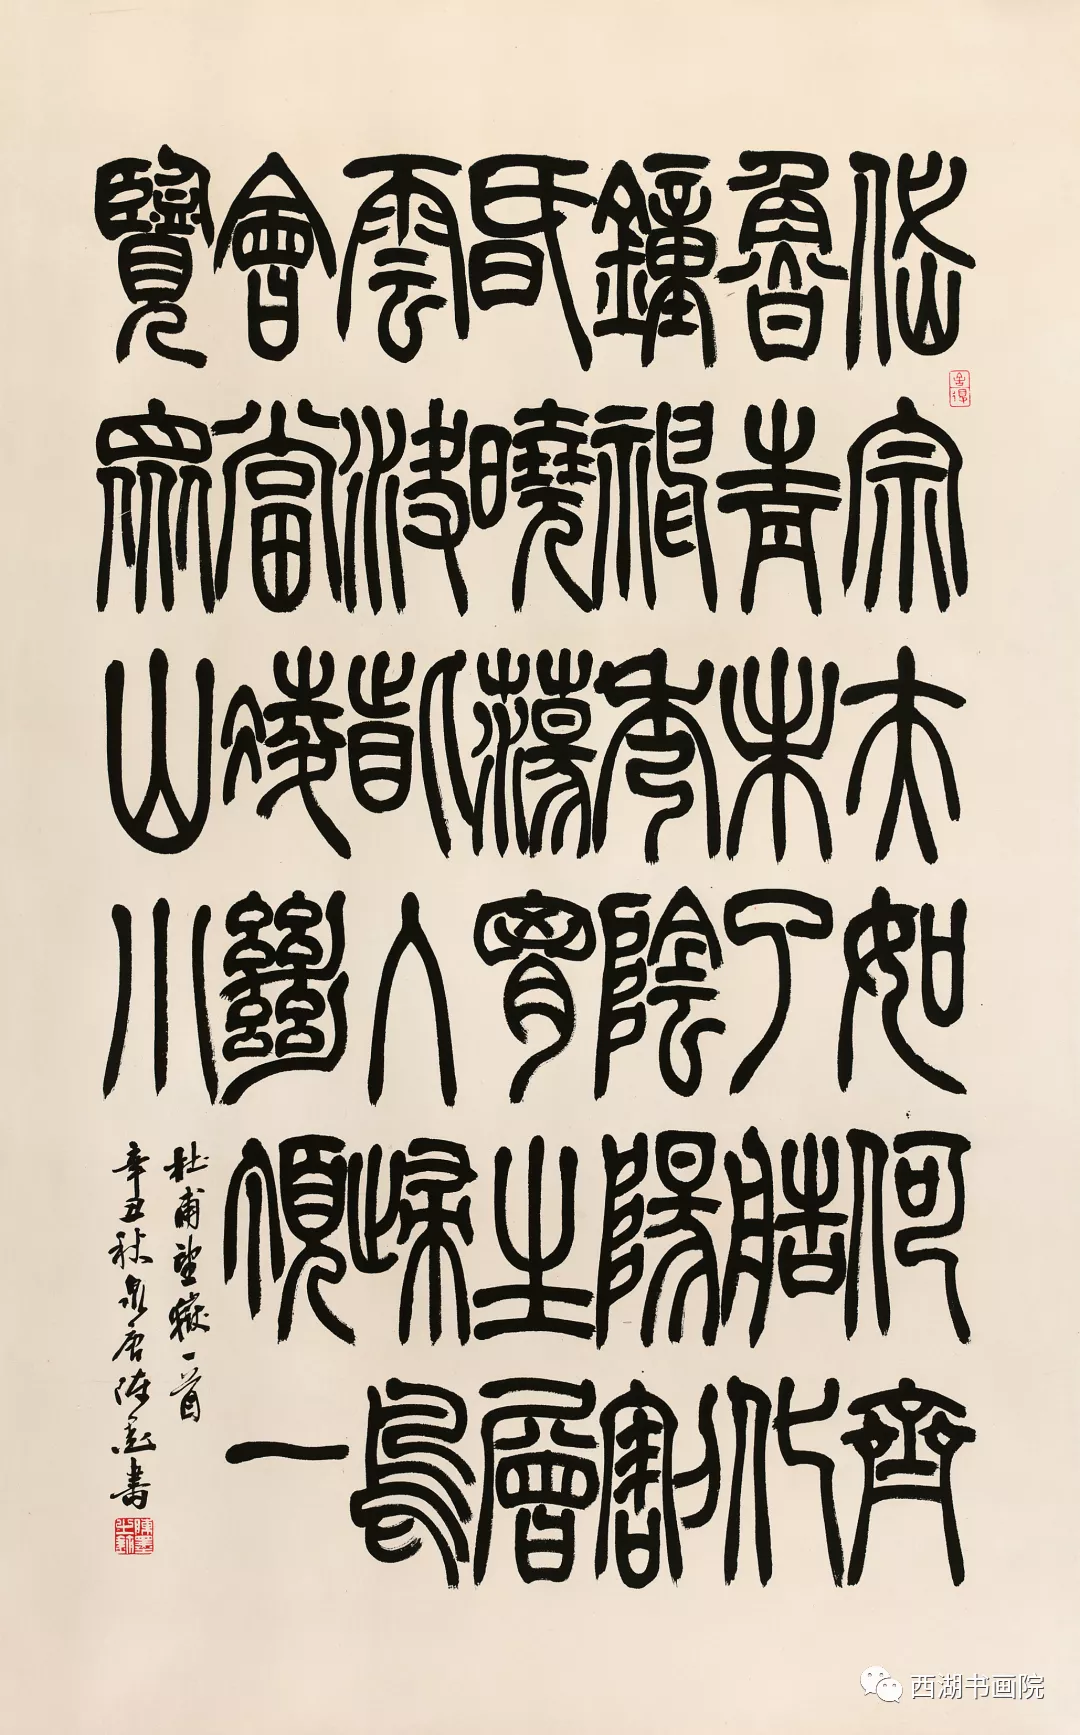 岱宗夫如何齊
魯青未了造化
鐘神秀陰陽割
昏曉蕩胷生層
雲決眥入歸鳥
會當凌絕領一
覽眾山川
杜甫望嶽一首
辛丑秋泉唐陳書
舍得
西湖书画院